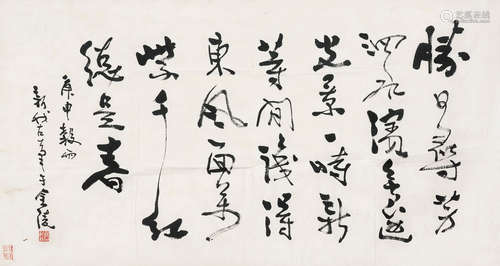 勝日尋芳
泗水濱無邊
光景一時新
等閒識得
東風面萬
紫千紅
總是春
庚申穀雨
于金陵